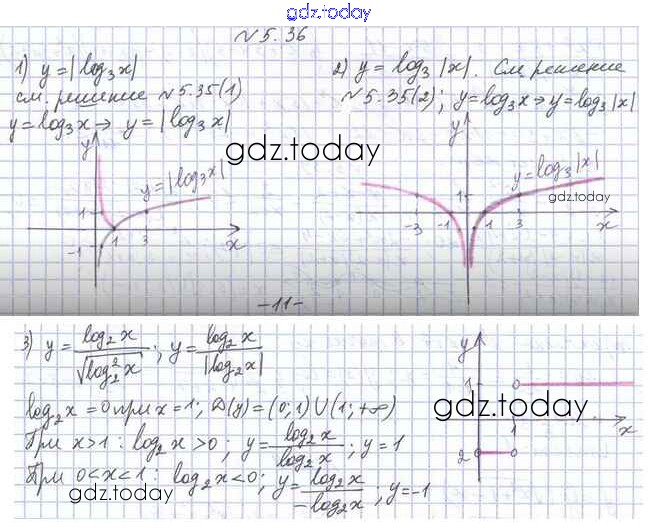 gdz.today
№5.36
1) y = |log₃x|
см. решение №5.35(1)
y = log₃x → y = |log₃x|
2) y = log₃|x|. См. решение
№5.35(2); y = log₃x → y = log₃|x|
gdz.today
y
y = |log₃x|
1
1
3
-1
x
y
y = log₃|x|
gdz.today
1
-3
-1
1
3
-1
x
-11-
3) y = log₂x / √(log₂²x); y = log₂x / |log₂x|
log₂x = 0 при x = 1; D(y) = (0; 1) ∪ (1; +∞)
При x > 1: log₂x > 0; y = log₂x / log₂x; y = 1
При 0 < x < 1: log₂x < 0; y = log₂x / -log₂x; y = -1
gdz.today
y
1
gdz.today
1
x
2